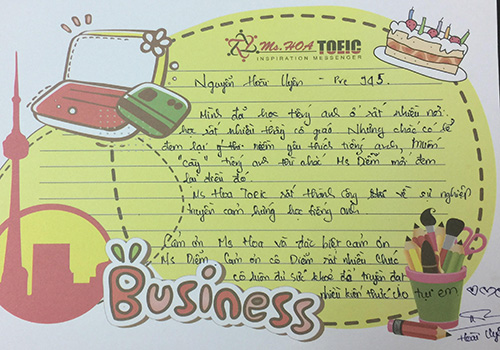 Ms. HOA TOEIC
INSPIRATION MESSENGER
Nguyễn Hoài Uyên - Pre 945.
Mình đã học tiếng anh ở rất nhiều nơi
học rất nhiều thầy cô giáo. Nhưng chắc có lẽ
đem lại niềm yêu thích tiếng anh, muốn
"cày" tiếng anh thì nhờ Ms Diễm mới đem
lại điều đó.
Ms Hoa Toeic rất thành công về sứ nghiệp
truyền cảm hứng học tiếng anh.
Cảm ơn Ms Hoa và đặc biệt cảm ơn
Ms Diễm. Cảm ơn cô Diễm rất nhiều. Chúc
cô luôn đủ sức khoẻ để truyền đạt
nhiều kiến thức cho tụi em
BUSINESS
Hoài Uyên